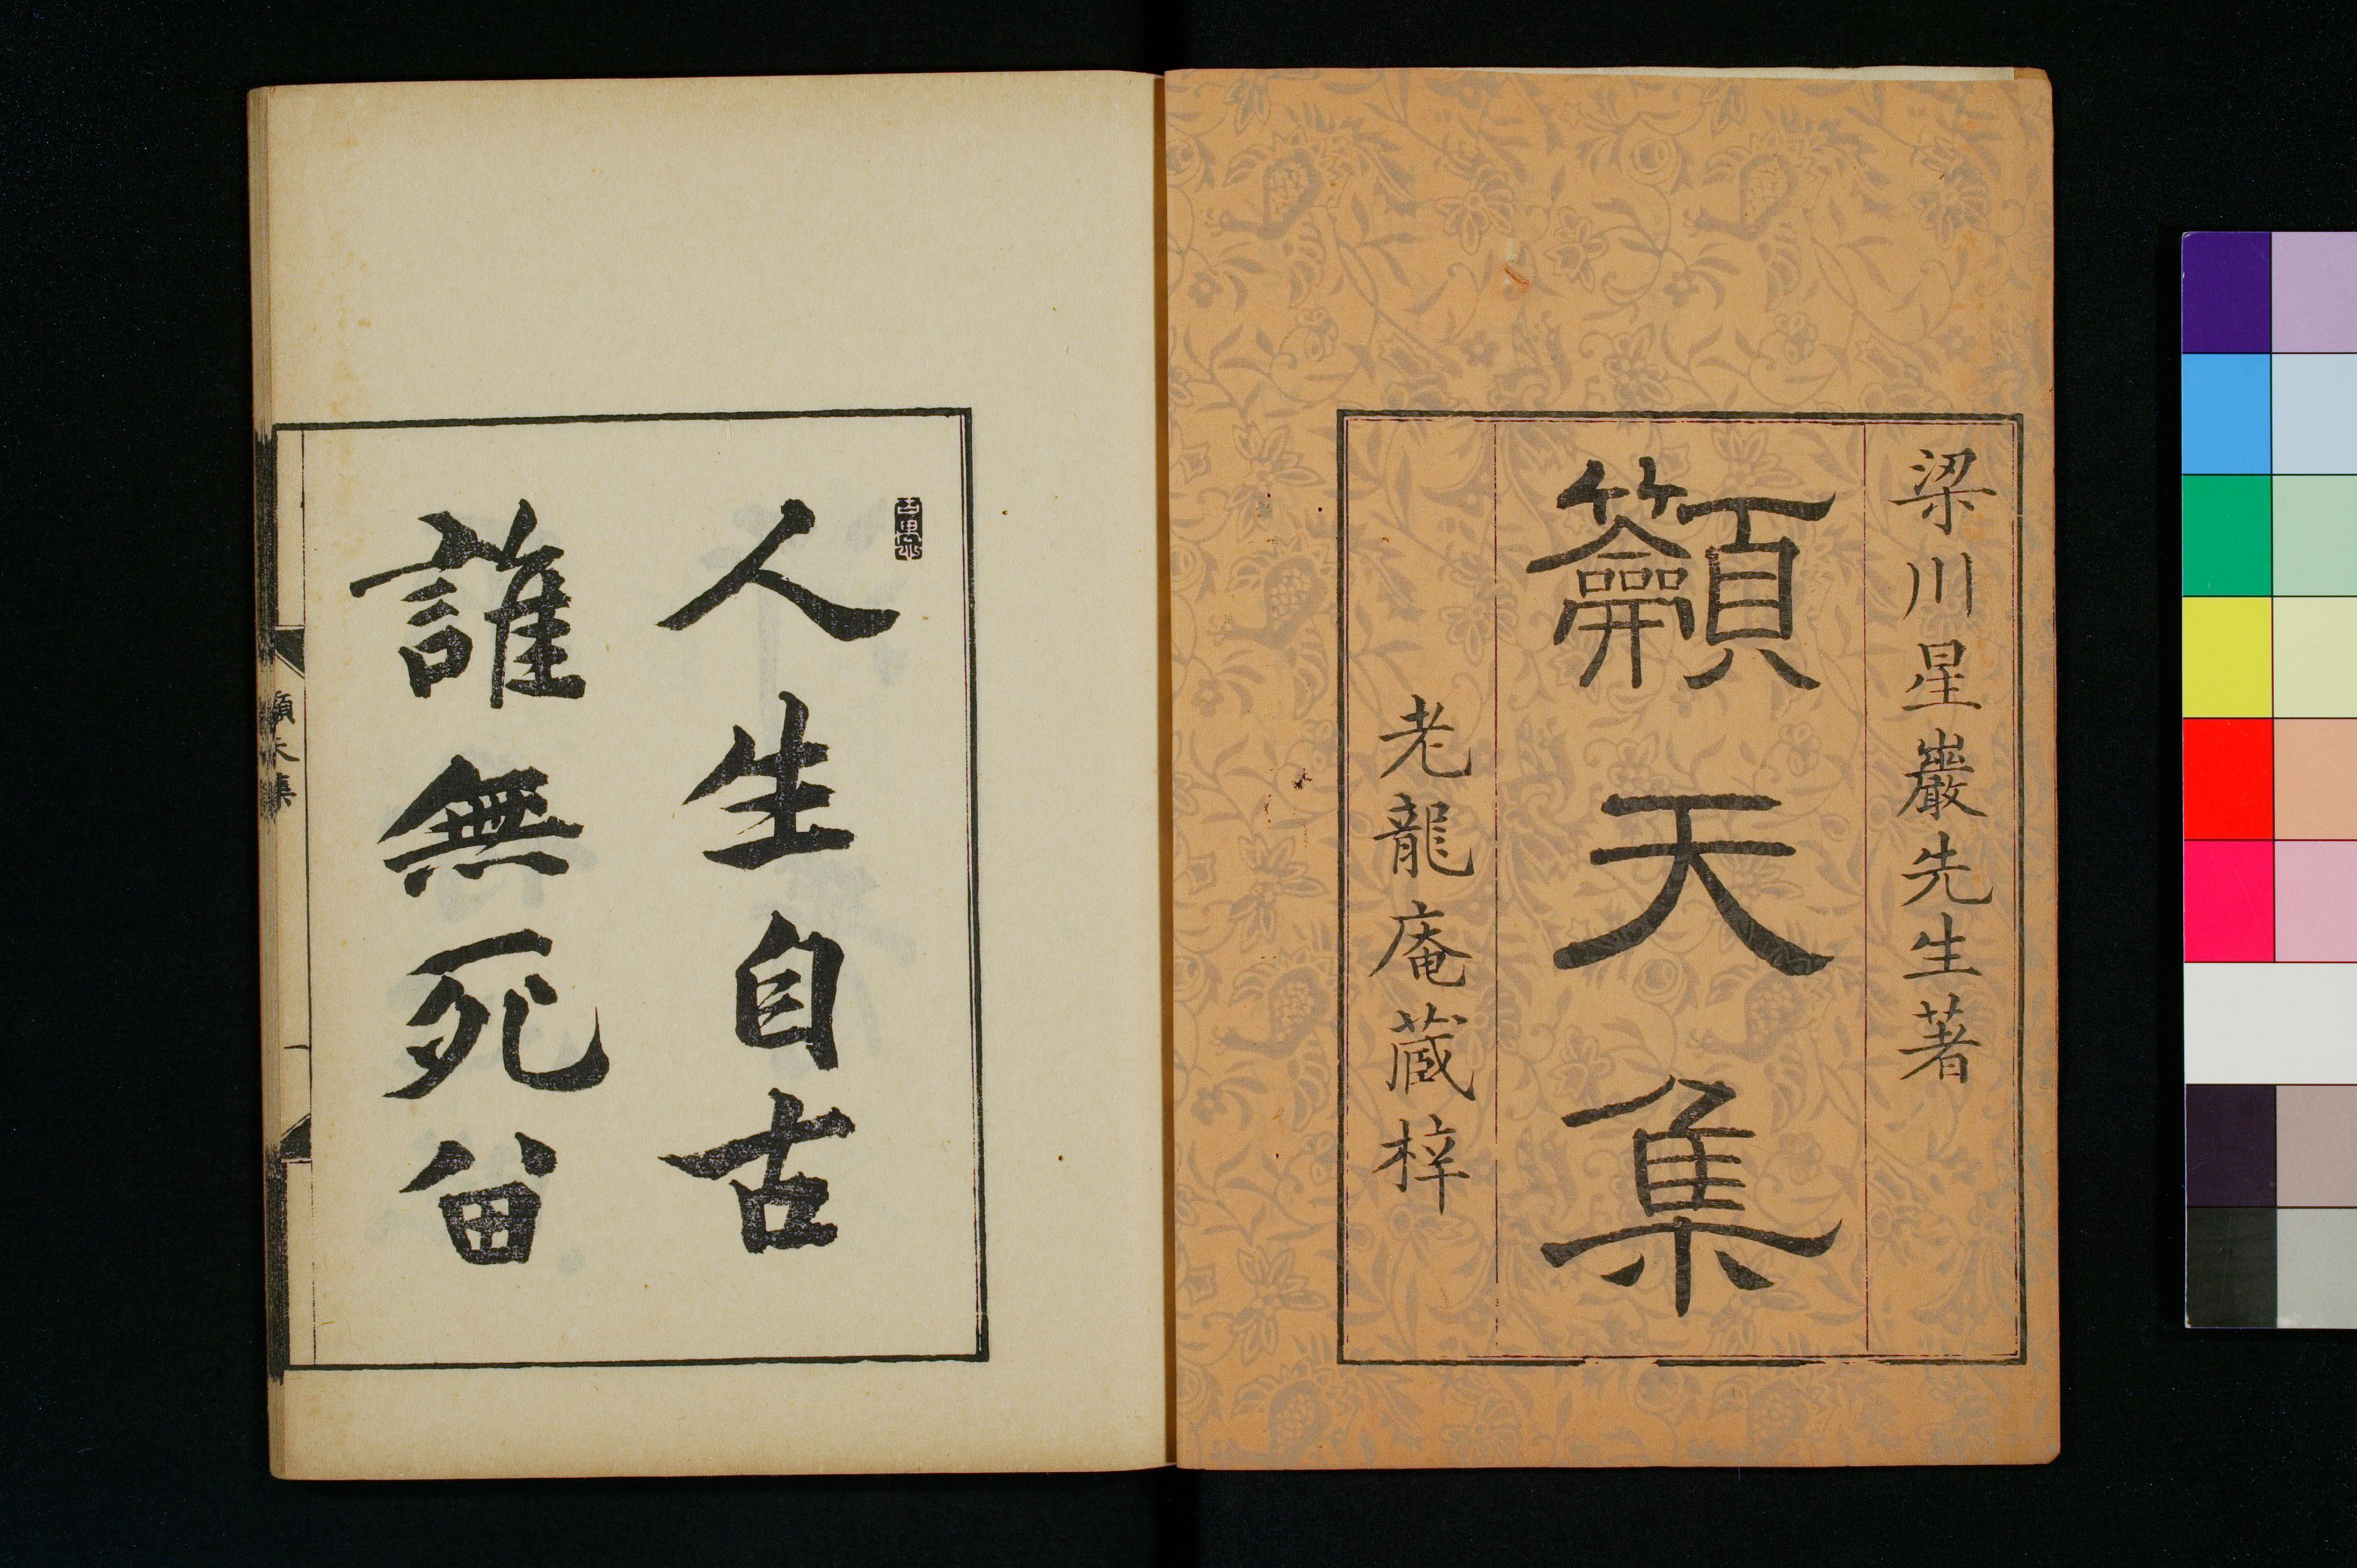 梁川星巖先生著
籲天集
老龍庵蔵梓
人生自古
誰無死留
籲天集
一